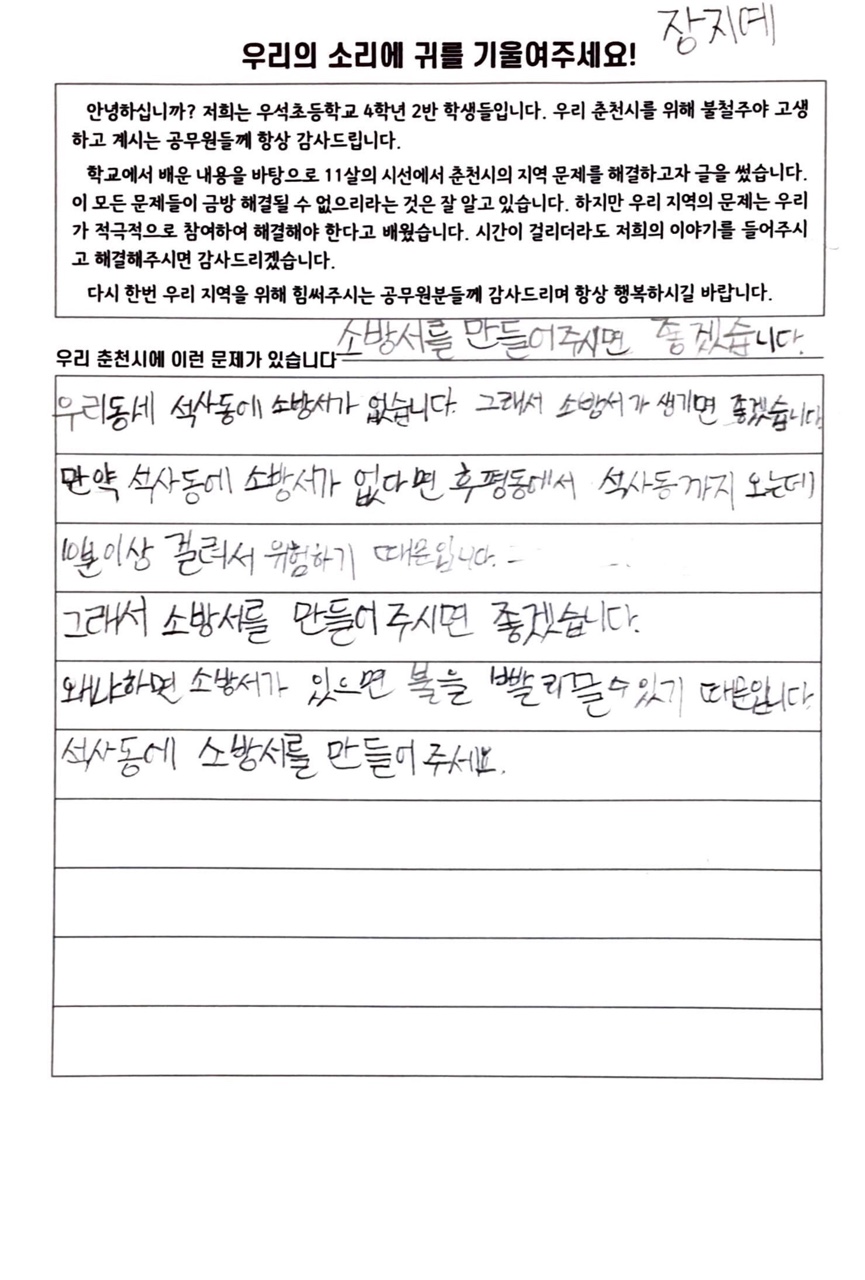 장지예
우리의 소리에 귀를 기울여주세요!
안녕하십니까? 저희는 우석초등학교 4학년 2반 학생들입니다. 우리 춘천시를 위해 불철주야 고생
하고 계시는 공무원들께 항상 감사드립니다.
학교에서 배운 내용을 바탕으로 11살의 시선에서 춘천시의 지역 문제를 해결하고자 글을 썼습니다.
이 모든 문제들이 금방 해결될 수 없으리라는 것은 잘 알고 있습니다. 하지만 우리 지역의 문제는 우리
가 적극적으로 참여하여 해결해야 한다고 배웠습니다. 시간이 걸리더라도 저희의 이야기를 들어주시
고 해결해주시면 감사드리겠습니다.
다시 한번 우리 지역을 위해 힘써주시는 공무원분들께 감사드리며 항상 행복하시길 바랍니다.
우리 춘천시에 이런 문제가 있습니다 소방서를 만들어주시면 좋겠습니다.
우리동네 석사동에 소방서가 없습니다. 그래서 소방서가 생기면 좋겠습니다.
만약 석사동에 소방서가 없다면 후평동에서 석사동까지 오는데
10분이상 걸려서 위험하기 때문입니다.
그래서 소방서를 만들어주시면 좋겠습니다.
왜냐하면 소방서가 있으면 불을 빨리끌수있기 때문입니다.
석사동에 소방서를 만들어주세요.